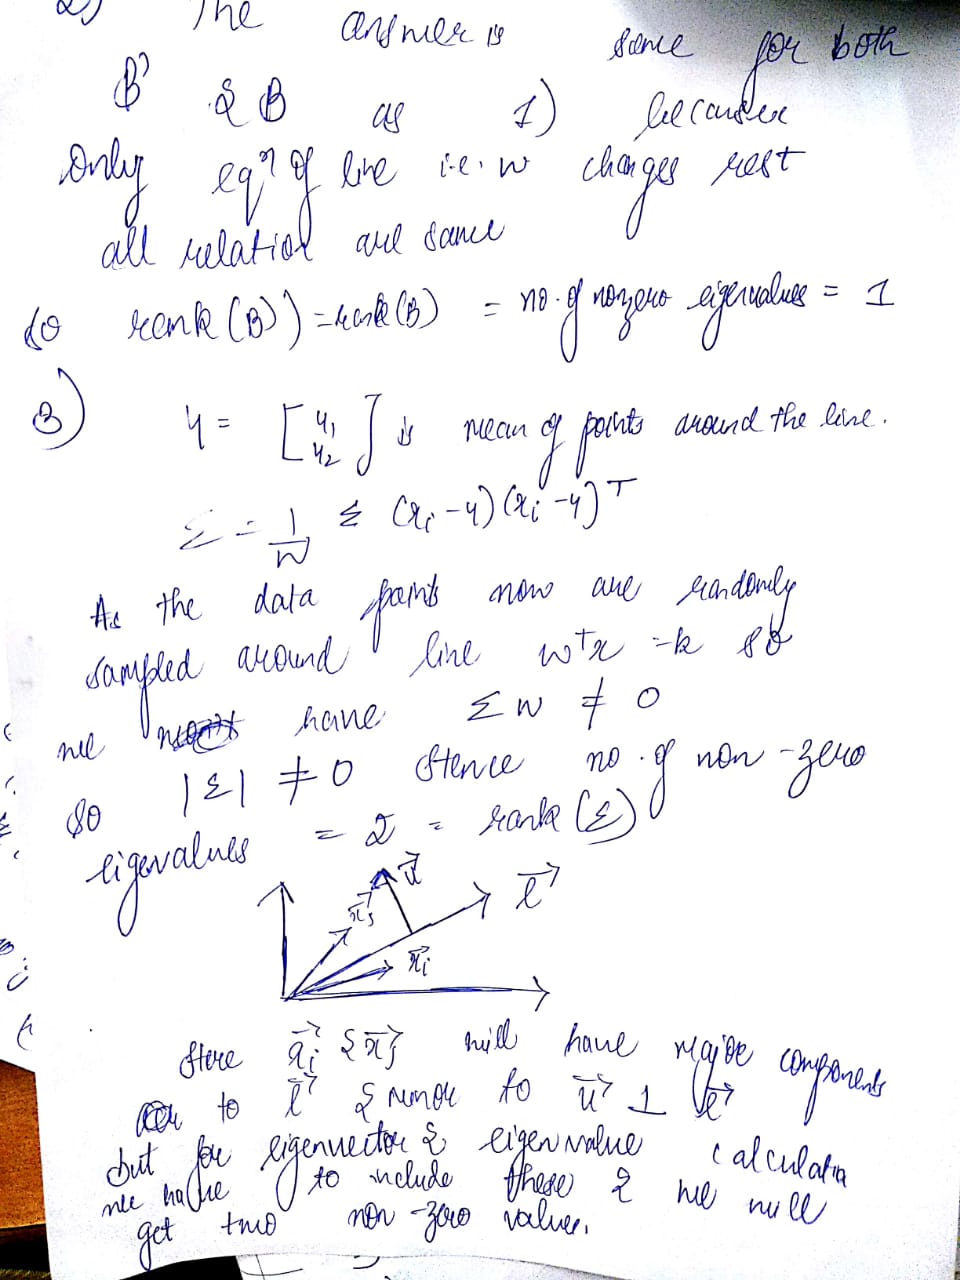 2) The answer is same for both
B' & B as 1) because
Only eqn of line i.e. w changes rest
all relation are same
so rank(B') = rank(B) = no. of nonzero eigenvalues = 1
3) μ = [μ1 μ2] is mean of points around the line.
Σ = 1/N Σ (xi - μ)(xi - μ)T
As the data points now are randomly
sampled around line wTx = k so
we have Σw ≠ 0
so |Σ| ≠ 0 Hence no. of non-zero
eigevalues = 2 = rank(Σ)
u
l
xj
xi
Here xi & xj will have major components
to l & minor to u ⊥ l
but for eigenvector & eigenvalue calculatin
we have to include these & we will
get two non-zero values.